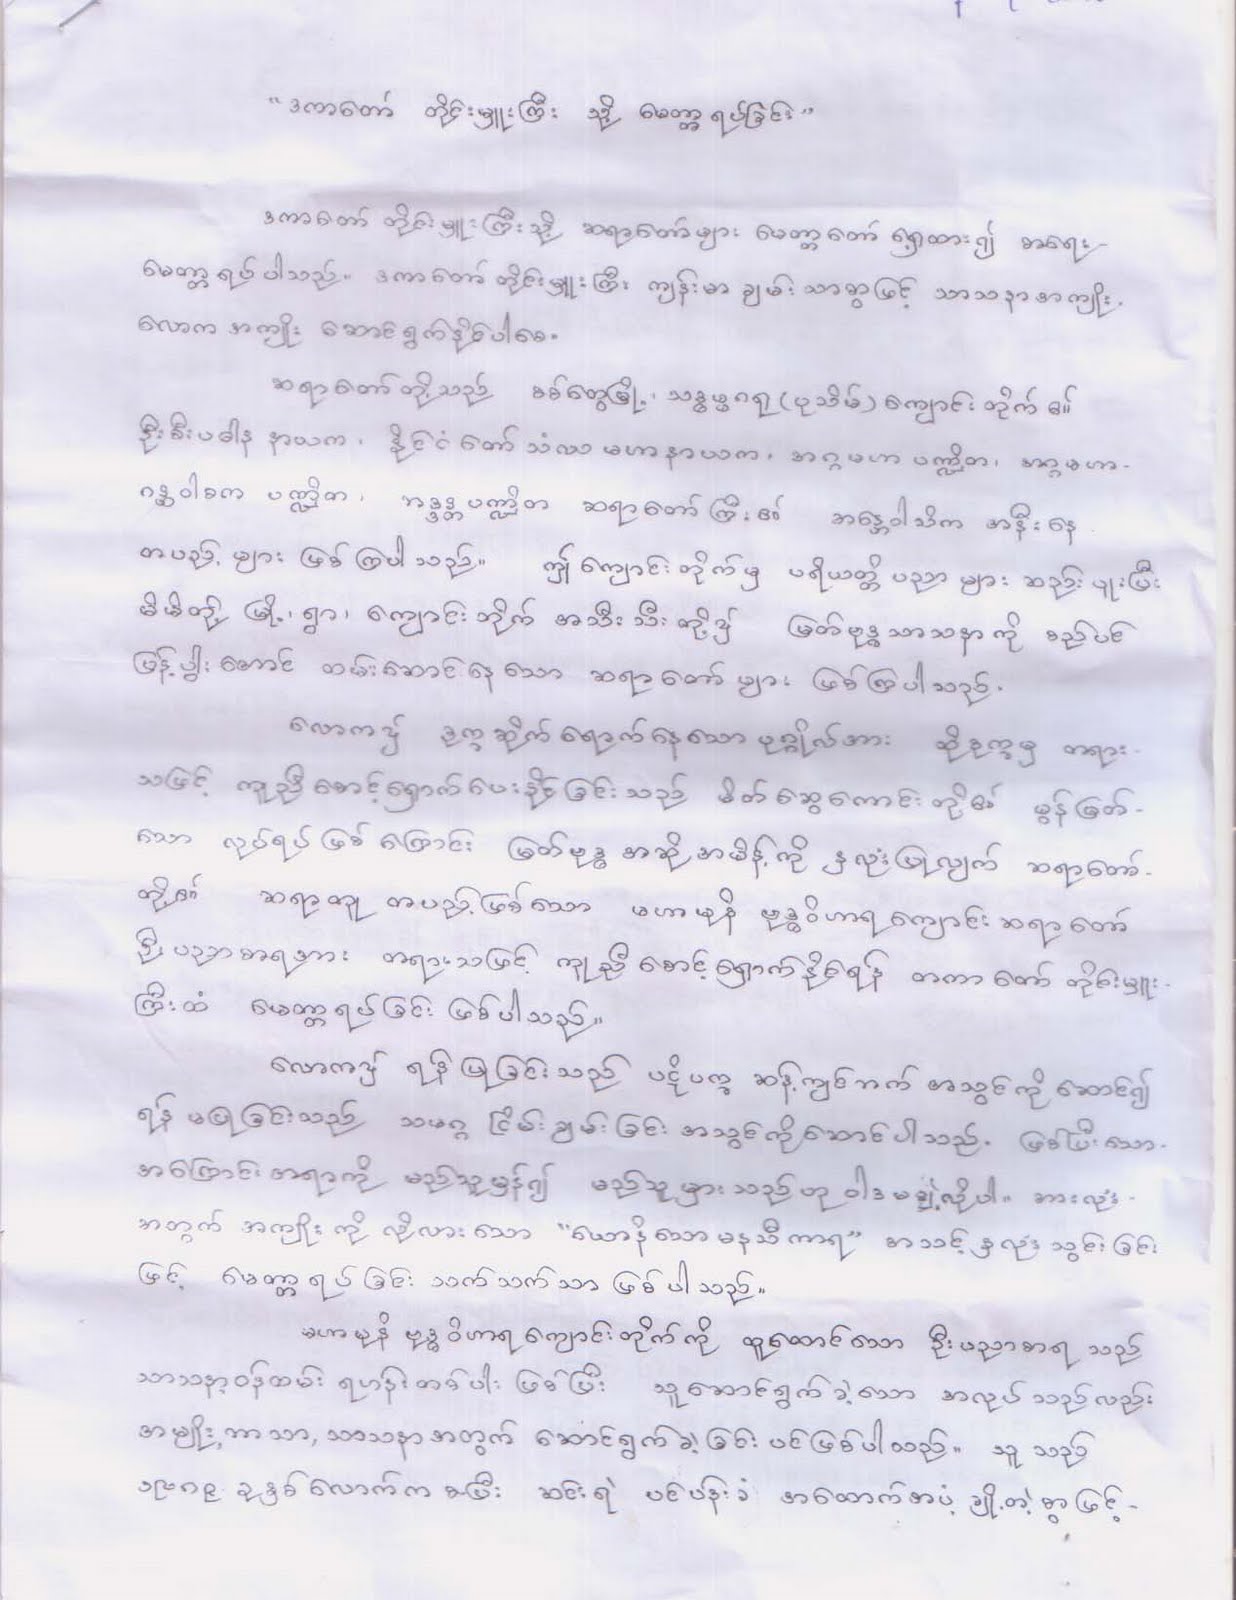 "ဒကာတော် တိုင်းမှူးကြီး သို့ မေတ္တာရပ်ခြင်း"
ဒကာတော် တိုင်းမှူးကြီးသို့ ဆရာတော်များ မေတ္တာတော် ရှေ့ထား၍ အရေး-
မေတ္တာရပ်ပါသည်။ ဒကာတော်တိုင်းမှူးကြီး ကျန်းမာ ချမ်းသာစွာဖြင့် သာသနာအကျိုး၊
လောကအကျိုး ဆောင်ရွက်နိုင်ပါစေ။
ဆရာတော်တို့သည် စစ်တွေမြို့၊ သဒ္ဓမ္မဂရု (ပုသိမ်) ကျောင်းတိုက်၏
ဦးစီးပဓါန နာယက၊ နိုင်ငံတော်သံဃမဟာနာယက၊ အဂ္ဂမဟာပဏ္ဍိတ၊ အဂ္ဂမဟာ-
ဂန္ထဝါစကပဏ္ဍိတ၊ ဆရာတော်ကြီး၏ အန္တေဝါသိက အနီးနေ
တပည့်များ ဖြစ်ကြပါသည်။ ဤကျောင်းတိုက်မှ ပရိယတ္တိပညာများ ဆည်းပူးပြီး
မိမိတို့ မြို့၊ရွာ၊ ကျောင်းတိုက် အသီးသီးတို့၌ မြတ်ဗုဒ္ဓသာသနာကို စည်ပင်
ပြန့်ပွါးအောင် ထမ်းဆောင်နေသော ဆရာတော်များ ဖြစ်ကြပါသည်။
လောက၌ ဒုက္ခဆိုက်ရောက်နေသောပုဂ္ဂိုလ်အား ထိုဒုက္ခမှ တရား-
သဖြင့် ကူညီစောင့်ရှောက်ပေးနိုင်ခြင်းသည် မိတ်ဆွေကောင်းတို့၏ မွန်မြတ်-
သော လုပ်ရပ်ဖြစ်ကြောင်း မြတ်ဗုဒ္ဓအဆိုအမိန့်ကို နှလုံးပြုလျက် ဆရာတော်-
တို့၏ ဆရာတူ တပည့်ဖြစ်သော မဟာမုနိ ဗုဒ္ဓဝိဟာရကျောင်းဆရာတော်
ဦးပညာစာရအား တရားသဖြင့် ကူညီစောင့်ရှောက်နိုင်ရန် တကာတော် တိုင်းမှူး-
ကြီးထံ မေတ္တာရပ်ခြင်း ဖြစ်ပါသည်။
လောက၌ ရန်ပြုခြင်းသည် ပဋိပက္ခ ဆန့်ကျင်ဘက် အသွင်ကိုဆောင်၍
ရန်မပြုခြင်းသည် သမဂ္ဂ ငြိမ်းချမ်းခြင်းအသွင်ကိုဆောင်ပါသည်။ ဖြစ်ပြီးသော-
အကြောင်းအရာကို မည်သူမှန်၍ မည်သူမှားသည်ဟု ဝါဒမချဲ့လိုပါ။ အားလုံး-
အတွက် အကျိုးကို လိုလားသော "ယောနိသောမနသီကာရ" အသင့်နှလုံးသွင်းခြင်း
ဖြင့် မေတ္တာရပ်ခြင်း သက်သက်သာ ဖြစ်ပါသည်။
မဟာမုနိ ဗုဒ္ဓဝိဟာရကျောင်းတိုက်ကို ထူထောင်သော ဦးပညာစာရ သည်
သာသနာ့ဝန်ထမ်း ရဟန်းတစ်ပါး ဖြစ်ပြီး သူဆောင်ရွက်ခဲ့သော အလုပ်သည်လည်း
အမျိုး,ဘာသာ,သာသနာအတွက် ဆောင်ရွက်ခဲ့ခြင်းပင်ဖြစ်ပါသည်။ သူသည်
ခုနှစ်လောက်က စ၍ပြီး ဆင်းရဲ ပင်ပန်းခံ အထောက်အပံ့ ချို့တဲ့စွာဖြင့်-